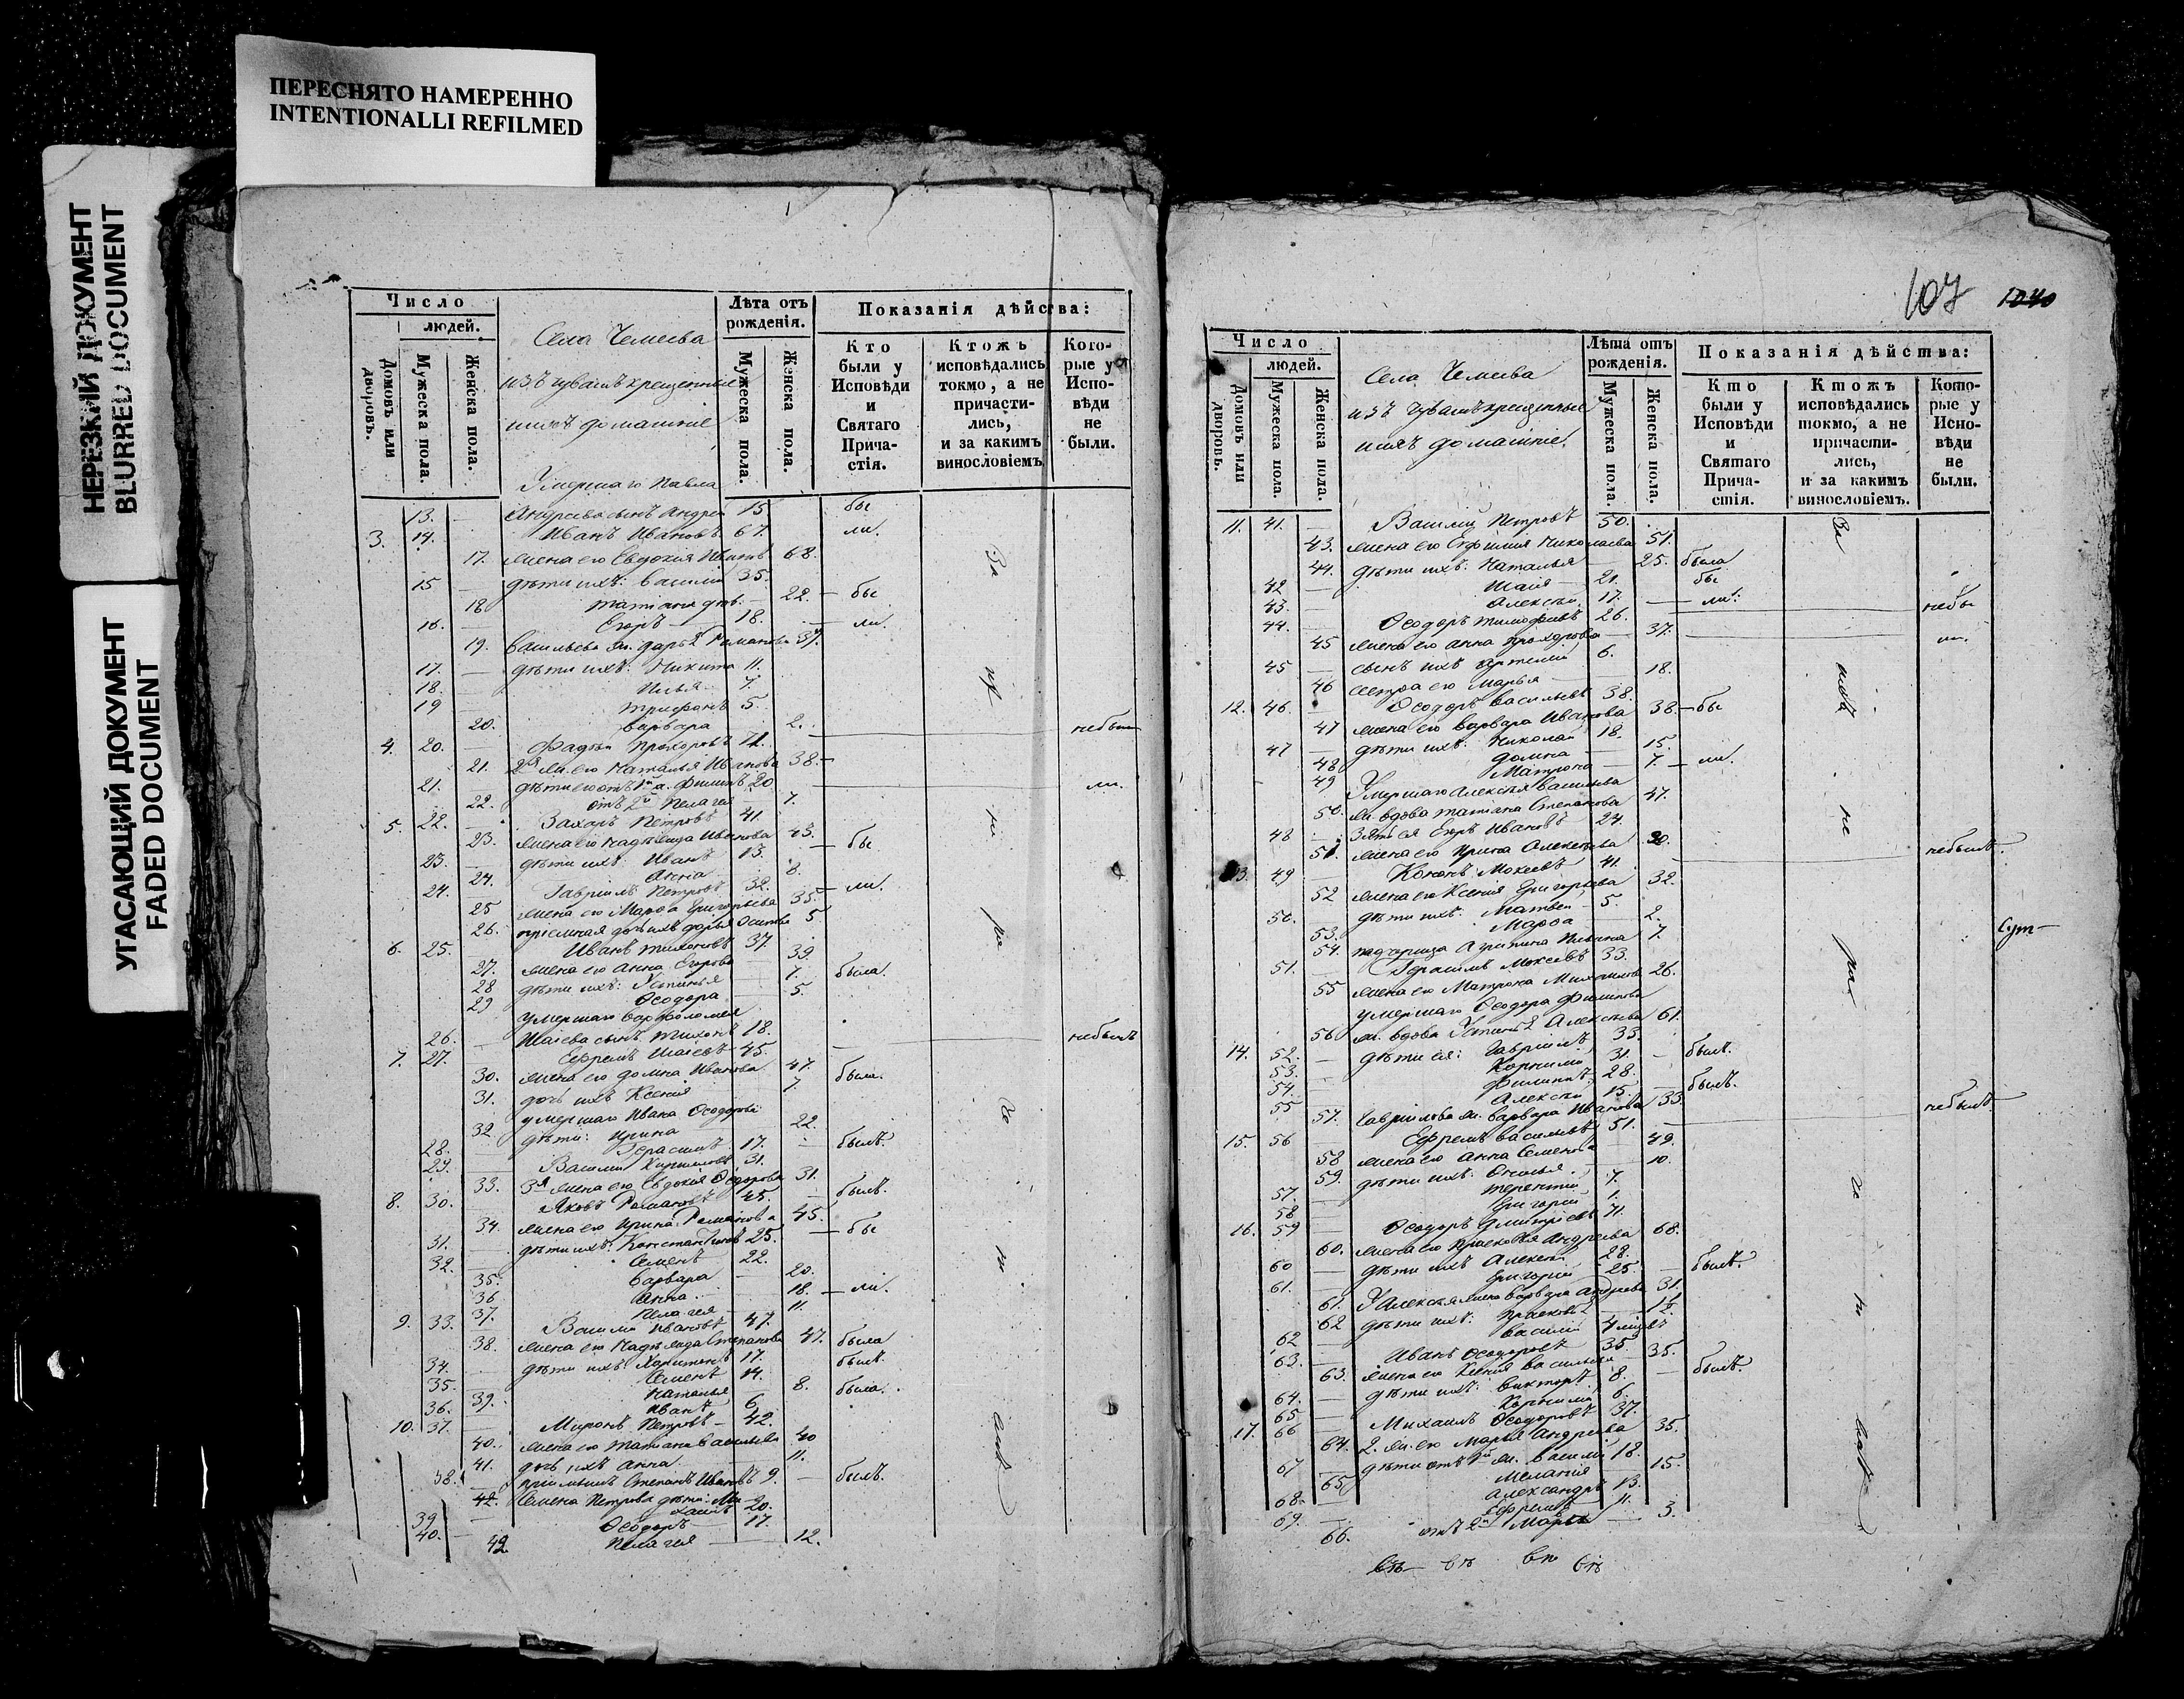 ПЕРЕСНЯТО НАМЕРЕННО
INTENTIONALLI REFILMED
НЕРЕЗКИЙ ДОКУМЕНТ
BLURRED DOCUMENT
УГАСАЮЩИЙ ДОКУМЕНТ
FADED DOCUMENT
Число
людей.
Домовъ или дворовъ.
Мужеска пола.
Женска пола.
Села Чемеева
изъ чувашъ крещенные
ихъ домашніе
Лѣта отъ рожденія.
Мужеска пола.
Женска пола.
Показанія дѣйства:
Кто были у Исповѣди и Святаго Причастія.
Ктожъ исповѣдались токмо, а не причастились, и за какимъ винословіемъ.
Которые у Исповѣди не были.
Умершаго Павла
13. Андреева сынъ Андрей 15 бы
3. 14. Иванъ Ивановъ 67. ли.
17. жена его Евдокія 68.
15 дѣти ихъ: Василій 35.
18. Татіана 22. бы
16. Егоръ 18. ли.
19. Васильева ж. Дарья Романова 37.
17. дѣти ихъ: Никита 11.
18. Илья 7.
19 Трифонъ 5.
20. Варвара 2.
4. 20. Фадѣй Прохоровъ 71. небыли
21. 2я ж. его Наталья Иванова 38.
21. дѣти его отъ 1й ж. Филипъ 20
22. отъ 2й Пелагея 7.
5. 22. Захаръ Петровъ 41.
23. жена его Надежда Иванова 43. бы
23. дѣти ихъ: Иванъ 13.
24. Анна 8.
24. Гавріилъ Петровъ 32. ли.
25 жена его Марфа Григорьева 35.
26. пріемная дочь ихъ Дарья 5
6. 25. Иванъ Тихоновъ 37.
27. жена его Анна Егорова 39.
28 дѣти ихъ: Устинья 7. была.
29 Ѳеодора 5.
умершаго Варфоломея
26. Исаева сынъ Тихонъ 18. небылъ
7. 27. Ефремъ Исаевъ 45.
30. жена его Домна Иванова 47. была.
31. дочь ихъ Ксенія 7.
умершаго Ивана Ѳеодорова
32 дѣти: Ирина 22.
28. Герасимъ 17. былъ.
29. Василій Кириловъ 31.
33. 3я жена его Евдокія Ѳедорова 31.
8. 30. Яковъ Романовъ 45. былъ.
34. жена его Ирина Романова 45.
31. дѣти ихъ: Константинъ 25. бы
32. Семенъ 22.
35. Варвара 20.
36 Анна 18. ли.
37. Пелагея 11.
9. 33. Василій Ивановъ 47.
38. жена его Надежда Степанова 47. была
34. дѣти ихъ: Харитонъ 17. былъ.
35. Семенъ 14.
39. Наталья 8. была.
36. Иванъ 6
10. 37. Миронъ Петровъ 42.
40. жена его Татіана Васильева 40
41. дочь ихъ Анна 11.
38. пріемышъ Степанъ Ивановъ 9. былъ.
42. Семена Петрова дѣти: Михаилъ 20.
39 Ѳеодоръ 17.
40. 42. Пелагея 12.
107 1040
Число
людей.
Домовъ или дворовъ.
Мужеска пола.
Женска пола.
Села Чемеева
изъ чувашъ крещенные
ихъ домашніе
Лѣта отъ рожденія.
Мужеска пола.
Женска пола.
Показанія дѣйства:
Кто были у Исповѣди и Святаго Причастія.
Ктожъ исповѣдались токмо, а не причастились, и за какимъ винословіемъ.
Которые у Исповѣди не были.
11. 41. Василій Петровъ 50.
43. жена его Евфимія Николаева 51.
44. дѣти ихъ: Наталья 25. была
42 Исай 21. бы
43. Алексѣй 17. ли.
44. Ѳеодоръ Тимофеевъ 26. небы
45 жена его Анна Прохорова 37. ли.
45 сынъ ихъ Артемій 6.
46 сестра его Марья 18.
12. 46. Ѳеодоръ Васильевъ 38.
47 жена его Варвара Иванова 38. бы
47 дѣти ихъ: Николай 18.
48 Домна 15.
49 Матрона 7. ли.
Умершаго Алексѣя Васильева
50. ж. вдова Татіана Степанова 47.
48 Зять ея Егоръ Ивановъ 24.
51. жена его Ирина Алексѣева 20. небылъ.
13. 49 Кононъ Мокеевъ 41.
52 жена его Ксенія Григорьева 32.
50. дѣти ихъ: Матвей 5
53. Марфа 2.
54. падчерица Агрипина 7. Сут-
51. Герасимъ Мокеевъ 33.
55 жена его Матрона Михайлова 26.
умершаго Ѳеодора Филипова
56 ж. вдова Устинья Алексѣева 61.
14. 52. дѣти ея: Гавріилъ 33. былъ.
53. Корнилій 31.
54. Филиппъ 28. былъ.
55 Алексѣй 15.
57. Гаврилова ж. Варвара Иванова 33. небылъ.
15. 56 Ефремъ Васильевъ 51.
58 жена его Анна Семенова 49.
59. дѣти ихъ: 10.
57. Терентій 7.
58 Григорій 1.
16. 59 Ѳеодоръ Дмитріевъ 71.
60. жена его Прасковья Андреева 68.
60 дѣти ихъ Алексѣй 28. былъ.
61. Григорій 25
61. У Алексѣя жена Варвара Андреева 31.
62 дѣти ихъ: Прасковья
62 Василій 4
63. Иванъ Ѳеодоровъ 35.
63. жена его Ксенія Васильева 35. былъ.
64. дѣти ихъ: Викторъ 8.
65 Корнилій 6.
17. 66 Михаилъ Ѳеодоровъ 37.
64. 2. ж. его Марья Андреева 35.
67 дѣти отъ 1й ж. Василій 18.
65 Меланія 15.
68. Александръ 13.
69. Ефремъ 11.
66. отъ 2й Марья 3.